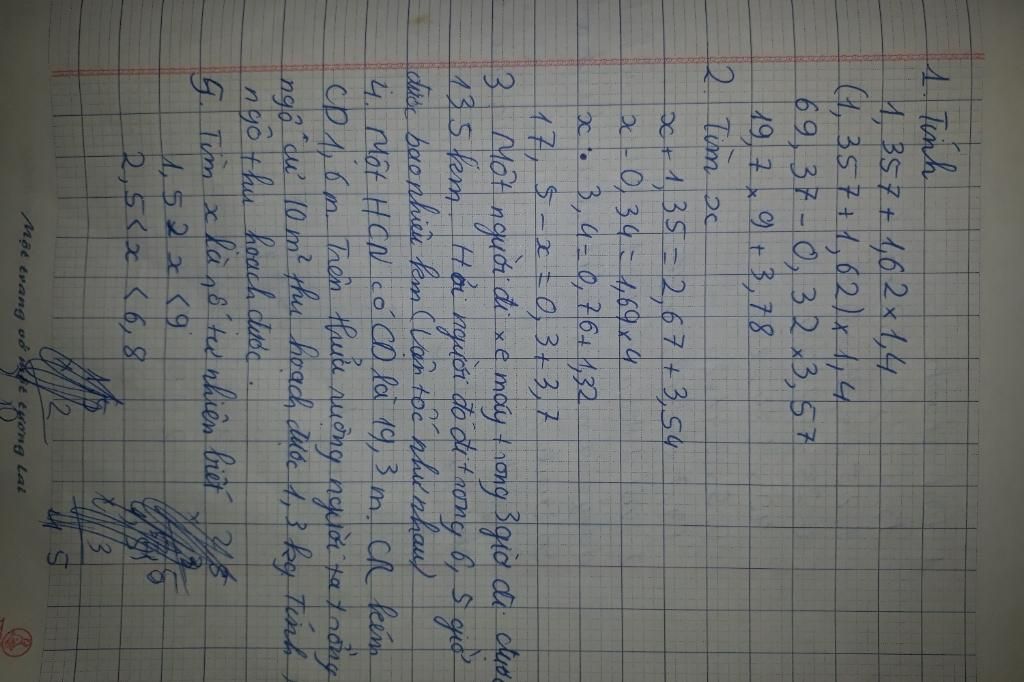 1. Tính
1,357 + 1,62 x 1,4
(1,357 + 1,62) x 1,4
69,37 - 0,32 x 3,57
19,7 x 9 + 3,78
2. Tìm x
x + 1,35 = 2,67 + 3,54
x - 0,34 = 1,69 x 4
x : 3,4 = 0,76 + 1,32
17,5 - x = 0,3 + 3,7
3 Một người đi xe máy trong 3 giờ đi được
135 km. Hỏi người đó đi trong 6,5 giờ
được bao nhiêu km (Vận tốc như nhau)
4. Một HCN có CD là 19,3 m. CR kém
CD 1,6 m Trên thửa ruộng người ta trồng
ngô cứ 10 m² thu hoạch được 1,3 kg. Tính
ngô thu hoạch được.
5. Tìm x là số tự nhiên biết
1,52 x < 9
2,5 < x < 6,8